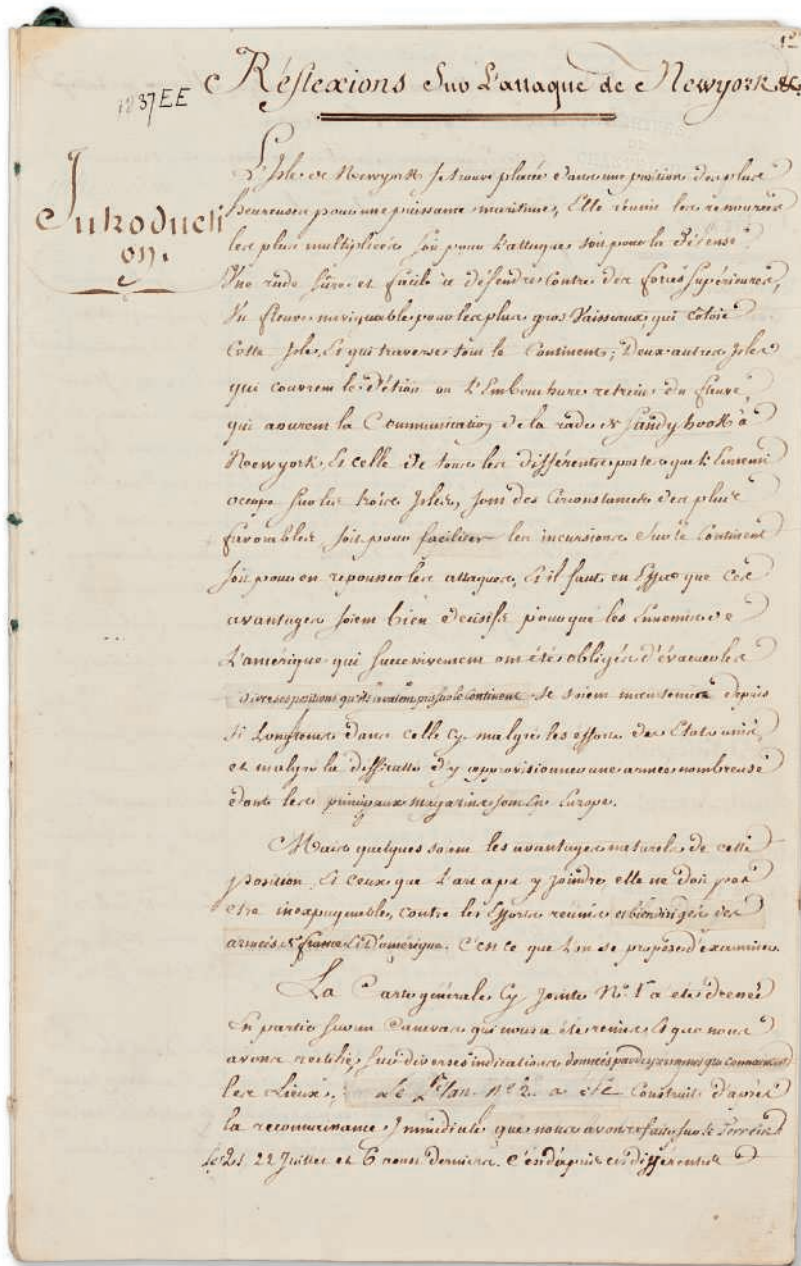 1º
1237EE
Réflexions Sur L'attaque de Newyork &c.
Introducti
on.
L'Isle de Newyork se trouve placée dans une position des plus
heureuses pour une puissance maritime, Elle réunit les ressources
les plus multipliées soit pour l'attaque soit pour la défense
Une rade sûre et facile à défendre contre des forces supérieures,
Un fleuve navigable pour les plus gros Vaisseaux, qui cotoie
Cette Isle, Et qui traverse tout le Continent; Deux autres Isles
qui couvrent le détroit ou l'Embouchure retrécie du fleuve,
qui assurent la Communication de la rade de Sandy hook à
Newyork, Et celle de tous les différents postes que l'Ennemi
occupe sur les trois Isles, sont des Circonstances des plus
favorables, soit pour faciliter les incursions sur le Continent
soit pour en repousser les attaques, Et il faut en Effet que ces
avantages soient bien décisifs pour que les Ennemis de
L'amérique qui successivement ont étés obligés d'évacuer les
diverses positions qu'ils avoient pris sur le Continent se soient maintenus depuis
si Longtems dans celle cy malgré les efforts des Etats unis,
et malgré la difficulté d'y approvisionner une armée nombreuse
dont les principaux magazins sont En Europe.
Mais quelques soient les avantages naturels de cette
position Et ceux que L'art a pu y joindre elle ne doit pas
etre inexpugnable, contre les Efforts réunis et bien dirigés des
armées de france Et D'amérique. C'est ce que l'on se propose d'examiner.
La Carte générale Cy Jointe Nº 1er a eté dressée
En partie sur un Canevas qui nous a été remis Et que nous
avons rectifié sur diverses indications données par des personnes qui connaissent
les Lieux. Le Plan nº 2. a eté Construit d'après
la reconnaissance Immédiate que nous avons faite sur le Terrein
le 21 22 Juillet et 6 aoust derniers. C'est d'après ces différentes